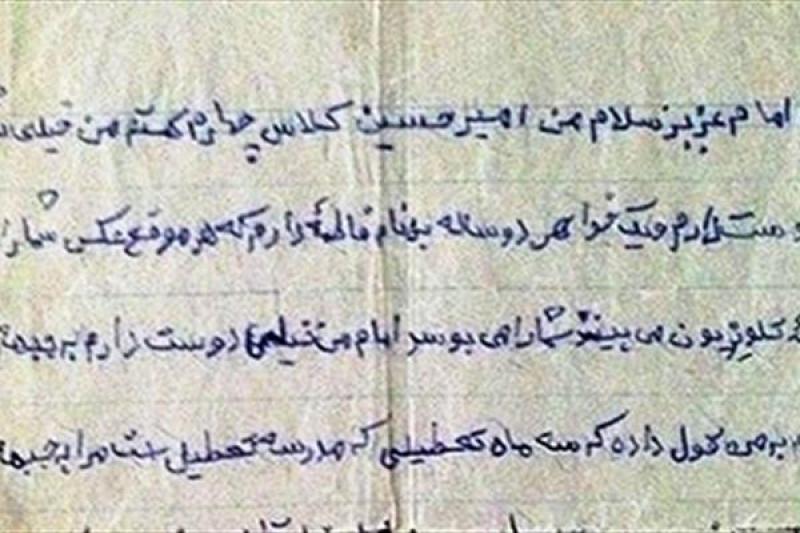 امام عزیز سلام من امیرحسین کلاس چهارم هستم من خیلی
دوست دارم و یک خواهر دو ساله بنام فاطمه دارم که هر موقع عکس شما را
تلویزیون می بیند شما را می بوسد امام من خیلی دوست دارم به جبهه
به من قول داده که سه ماه تعطیلی که مدرسه تعطیل است مرا به جبهه